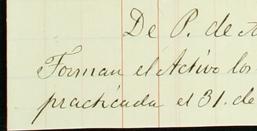 De P. de
Forman el Activo los
practicada el 31. de